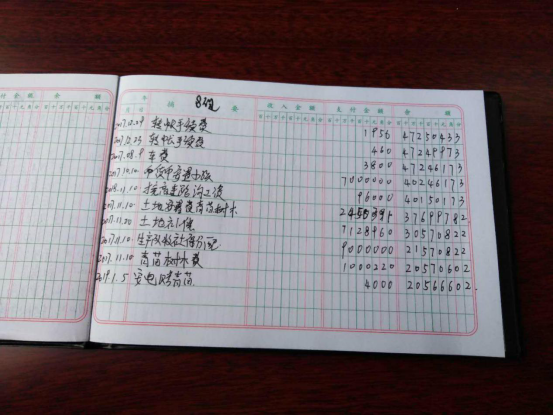 付金额 余 额
年 摘 要 收入金额 支付金额 余 额
月 日
2017.12.29 转帐手续费 1956 47250433
2017.12.23 转帐手续费 460 47249973
2017.08.9 车费 3800 47246173
2017.10.10 7000000 40246173
2018.11.10 96000 40150173
2017.11.10 土地 青苗树木 2450391 37699782
2017.11.20 土地 7128960 30570822
2017.11.10 生产队 分配 9000000 21570822
2017.11.10 青苗树木费 1000220 20570602
2019.1.5 安电 青苗 4000 20566602